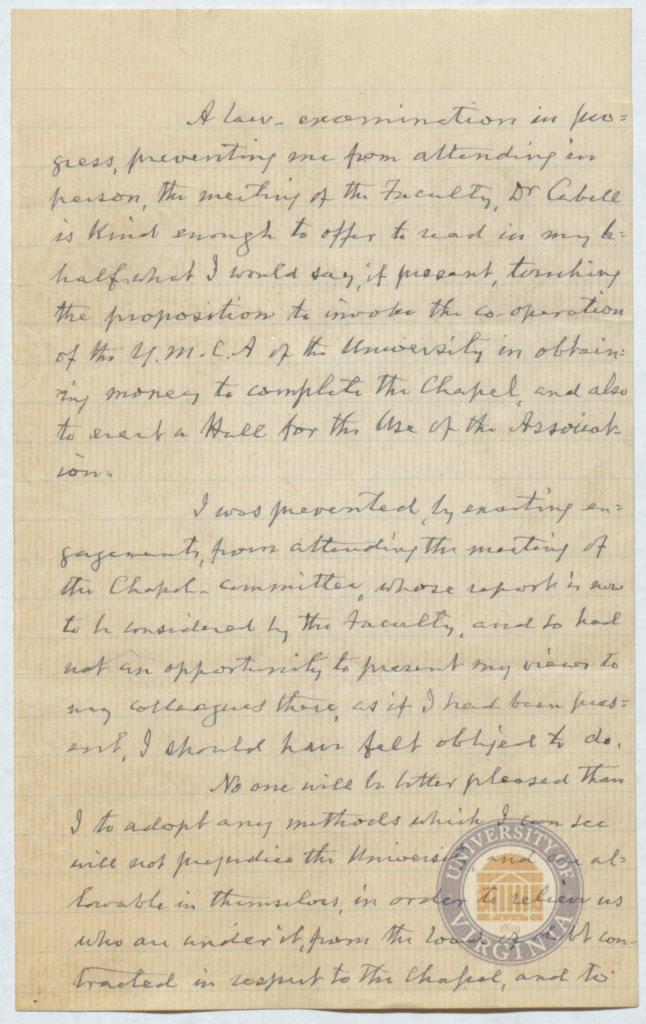 A law-examination in pro=
gress, preventing me from attending in
person, the meeting of the Faculty, Dr Cabell
is kind enough to offer to read in my be=
half, what I would say, if present, touching
the proposition to invoke the co-operation
of the Y.M.C.A of the University in obtain=
ing money to complete the Chapel, and also
to erect a Hall for the Use of the Associat=
ion.
I was prevented, by exacting en=
gagements, from attending the meeting of
the Chapel-committee, whose report is now
to be considered by the Faculty, and so had
not an opportunity to present my views to
my colleagues there, as if I had been pres=
ent, I should have felt obliged to do.
No one will be better pleased than
I to adopt any methods which I can see
will not prejudice the University and are al=
lowable in themselves, in order to relieve us
who are under it, from the load of debt con=
tracted in respect to the Chapel, and to
UNIVERSITY OF VIRGINIA
1819